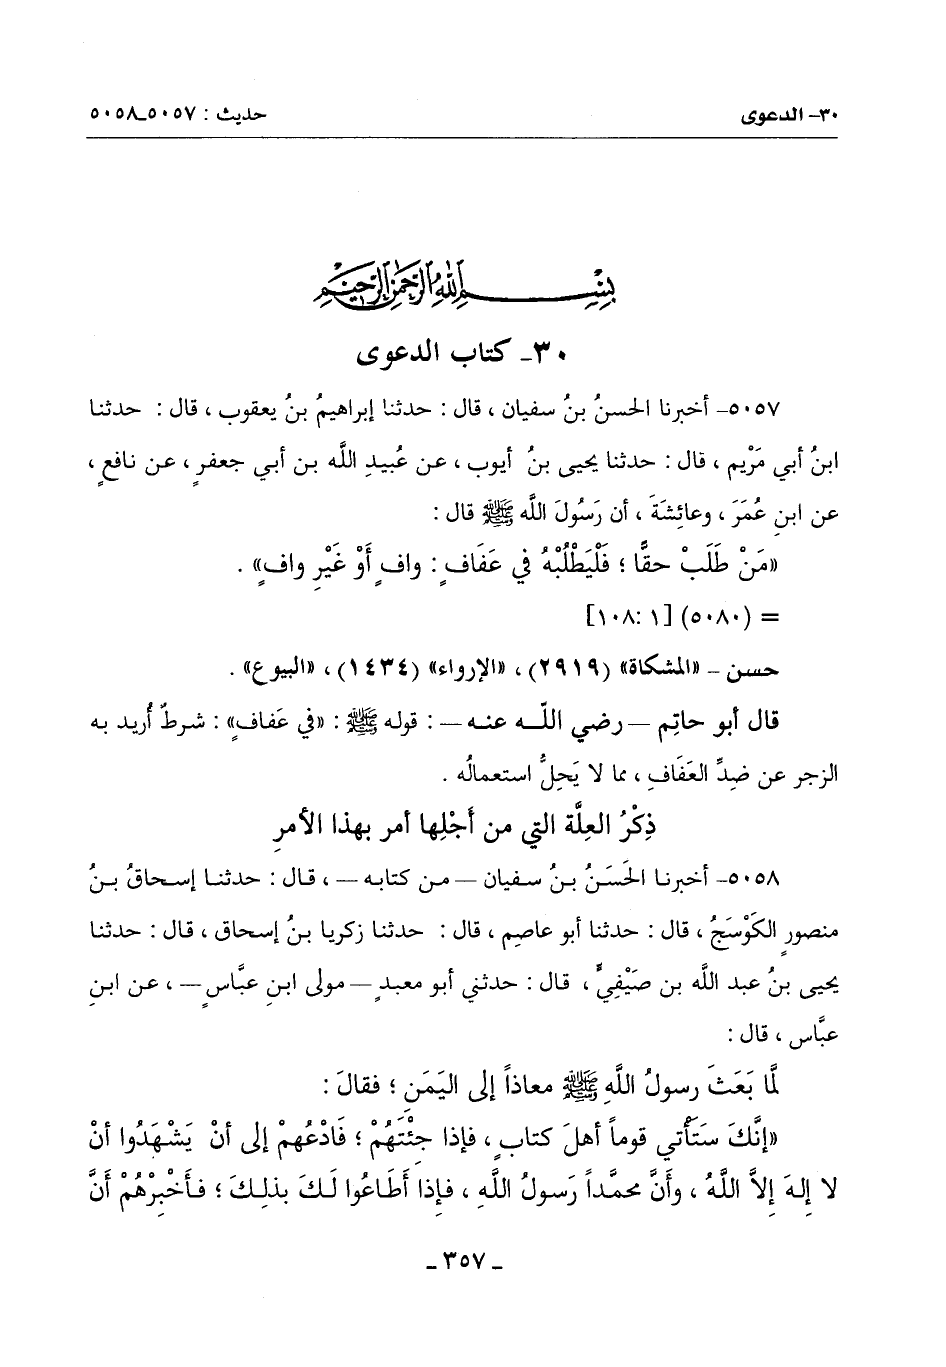 ٣٠- الدعوى
حديث : ٥٠٥٧ـ٥٠٥٨
بِسْمِ اللهِ الرَّحْمٰنِ الرَّحِيمِ
٣٠ـ كتاب الدعوى
٥٠٥٧ـ أخبرنا الحسنُ بنُ سفيان ، قال : حدثنا إبراهيمُ بنُ يعقوب ، قال : حدثنا
ابنُ أبي مَرْيم ، قال : حدثنا يحيى بنُ أيوب ، عن عُبيدِ الله بن أبي جعفرٍ ، عن نافعٍ ،
عن ابنِ عُمَرَ ، وعائِشَةَ ، أن رَسُولَ اللَّه ﷺ قال :
«مَنْ طَلَبْ حقًّا ؛ فَلْيَطْلُبْهُ في عَفَافٍ : وافٍ أَوْ غَيْرِ وافٍ» .
= (٥٠٨٠) [١ :١٠٨]
حسن ـ «المشكاة» (٢٩١٩) ، «الإرواء» (١٤٣٤) ، «البيوع» .
قال أبو حاتِم —رضي اللَّه عنه— : قوله ﷺ : «في عَفافٍ» : شرطٌ أُريد به
الزجر عن ضِدِّ العَفَافِ ، مما لا يَحِلُّ استعمالُه .
ذِكْرُ العِلَّة التي من أَجْلِها أمر بهذا الأمرِ
٥٠٥٨ـ أخبرنا الحَسَنُ بنُ سفيان —من كتابه— ، قال : حدثنا إسحاقُ بنُ
منصورٍ الكَوْسَجُ ، قال : حدثنا أبو عاصِم ، قال : حدثنا زكريا بنُ إسحاق ، قال : حدثنا
يحيى بنُ عبد اللَّه بن صَيْفِيٍّ ، قال : حدثني أبو معبدٍ —مولى ابنِ عبَّاسٍ— ، عن ابنِ
عبَّاس ، قال :
لَمَّا بَعَثَ رسولُ اللَّهِ ﷺ معاذاً إلى اليَمَنِ ؛ فقالَ :
«إنَّكَ سَتَأتي قوماً أهلَ كتابٍ ، فإذا جِئْتَهُمْ ؛ فَادْعُهمْ إلى أنْ يَشْهَدُوا أنْ
لا إلهَ إلاَّ اللَّهُ ، وأَنَّ محمَّداً رَسولُ اللَّهِ ، فإذا أَطَاعُوا لَكَ بذلِكَ ؛ فأَخْبِرْهُمْ أنَّ
ـ ٣٥٧ ـ